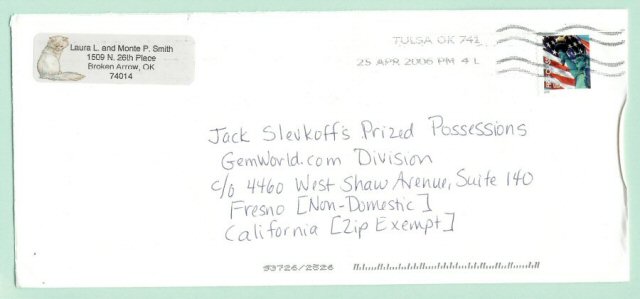 Laura L. and Monte P. Smith
1509 N. 26th Place
Broken Arrow, OK
74014
TULSA OK 741
25 APR 2006 PM 4 L
Jack Slevkoff's Prized Possessions
GemWorld.com Division
c/o 4460 West Shaw Avenue, Suite 140
Fresno [Non-Domestic]
California [Zip Exempt]
93726/2526